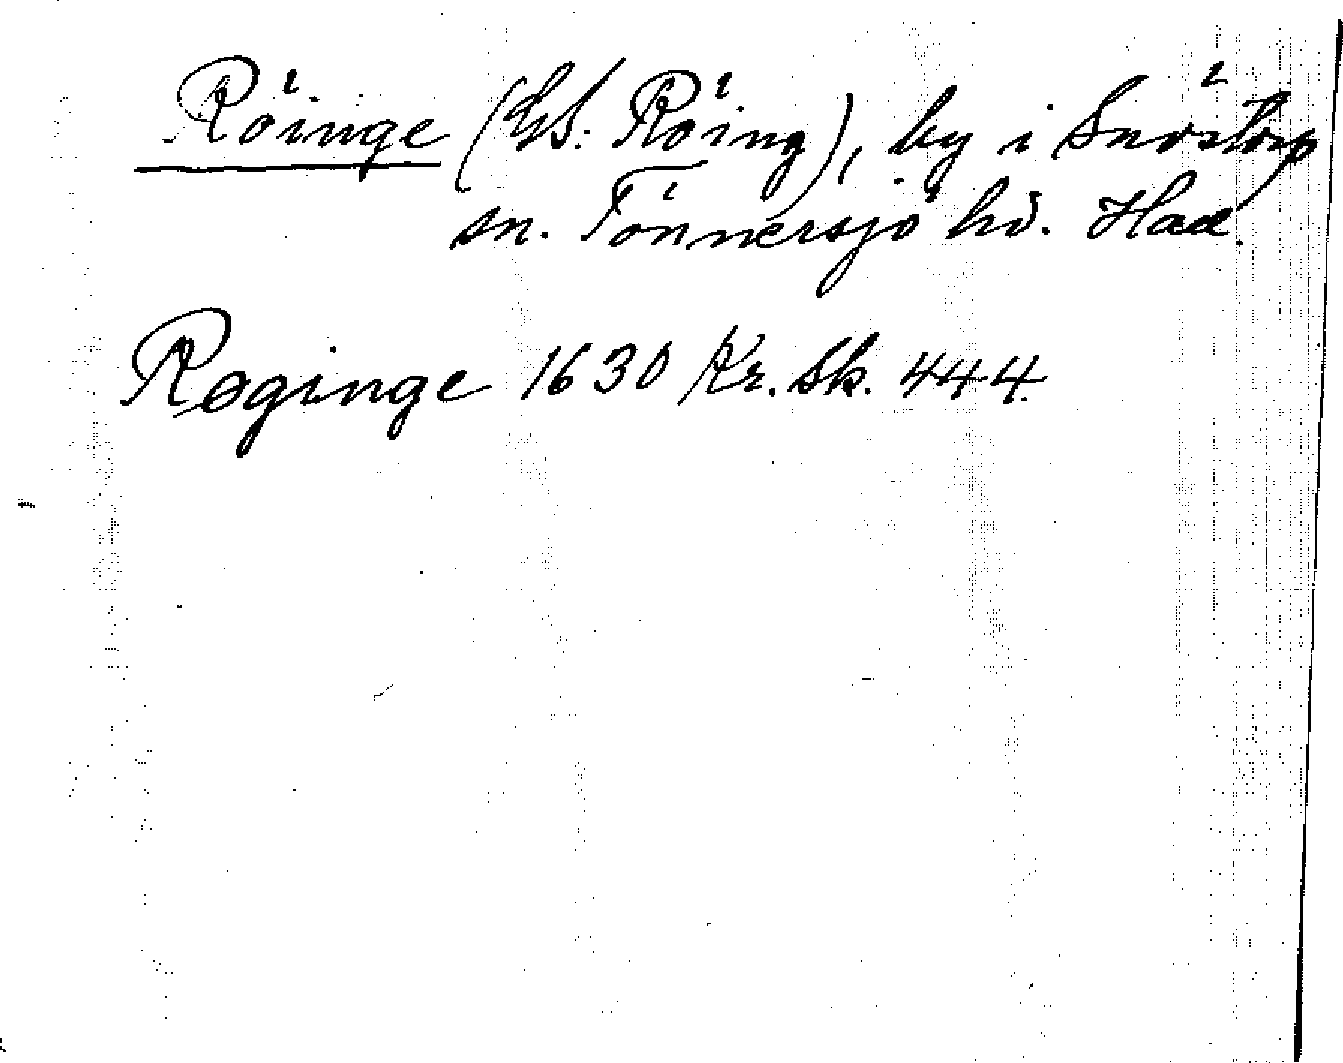 Röinge (GS. Röing), by i Snöstorp
sn. Tönnersjö hd. Hall.
Røginge 1630 Kr. Sk. 444.